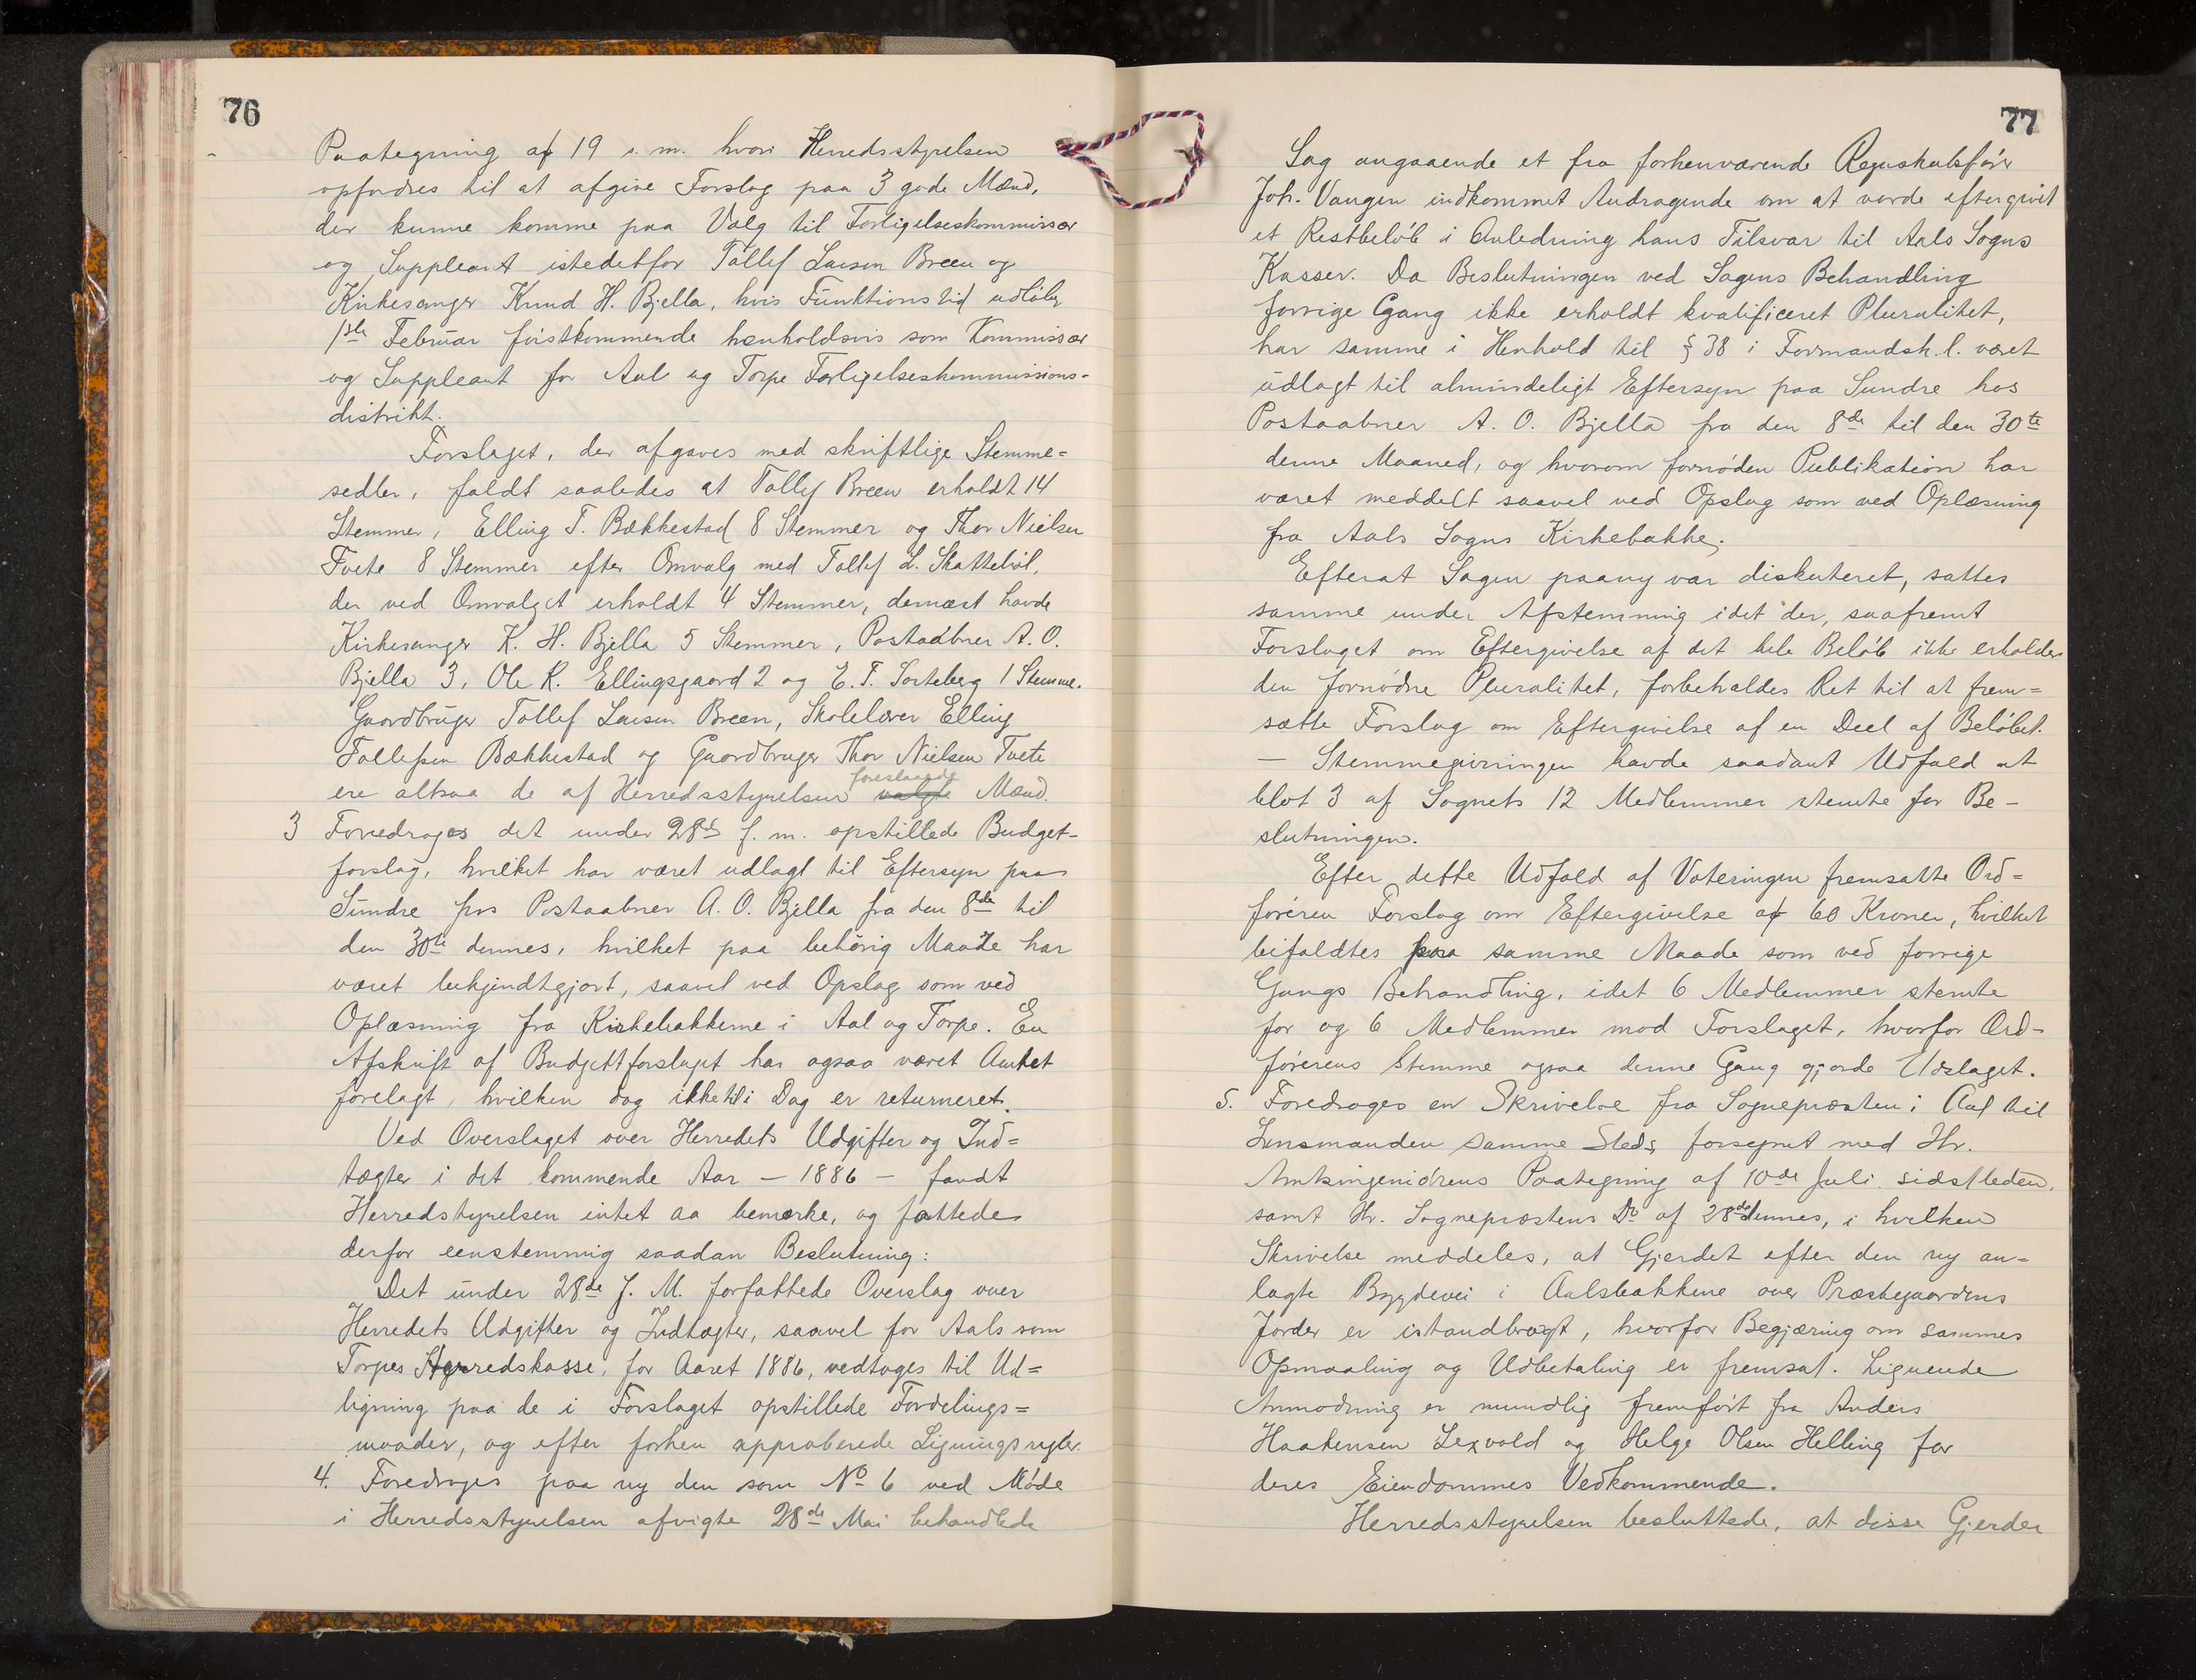 76
Paategning af 19 s. m. hvori Herredsstyrelsen
opfordres til at afgive Forslag paa 3 gode Mænd,
der kunne komme paa Valg til Forligelseskommissær
og Suppleant istedetfor Tollef Larsen Breen og
Kirkesanger Knud H. Bjella, hvis Funktionstid udløber
1ste Februar førstkommende henholdsvis som Kommissær
og Suppleant for Aal og Torpe Forligelseskommissions-
distrikt.
Forslaget, der afgaves med skriftlige Stemme=
sedler, faldt saaledes at Tollef Breen erholdt 14
Stemmer, Elling T. Bækkestad 8 Stemmer og Thor Nielsen
Tvete 8 Stemmer efter Omvalg med Tollef L. Skattebøl,
der ved Omvalget erholdt 4 Stemmer, dernæst havde
Kirkesanger K. H. Bjella 5 Stemmer, Postaabner A. O.
Bjella 3, Ole K. Ellingsgaard 2 og E. T. Sorteberg 1 Stemme.
Gaardbruger Tollef Larsen Breen, Skolelærer Elling
Tollefsen Bækkestad og Gaardbruger Thor Nielsen Tvete
foreslaaede
ere altsaa de af Herredsstyrelsen valgte Mænd.
3 Foredroges det under 28de f. m. opstillede Budget-
forslag, hvilket har været udlagt til Eftersyn paa
Sundre hos Postaabner A. O. Bjella fra den 8de til
den 30te dennes, hvilket paa behørig Maade har
været bekjendtgjort, saavel ved Opslag som ved
Oplæsning fra Kirkebakkerne i Aal og Torpe. En
Afskrift af Budgettforslaget har ogsaa været Amtet
forelagt, hvilken dog ikke til i Dag er returneret.
Ved Overslaget over Herredets Udgifter og Ind=
tægter i det kommende Aar – 1886 – fandt
Herredstyrelsen intet aa bemærke, og fattede
derfor eenstemmig saadan Beslutning:
Det under 28de f. M. forfattede Overslag over
Herredets Udgifter og Indtægter, saavel for Aals som
Torpes Herredskasse, for Aaret 1886, vedtages til Ud=
ligning paa de i Forslaget opstillede Fordelings=
maader, og efter forhen approberede Ligningsregler.
4. Foredroges paa ny den som No 6 ved Møde
i Herredsstyrelsen afvigte 28de Mai behandlede
77
Sag angaaende et fra forhenværende Regnskabsfører
Joh. Vangen indkommet Andragende om at vorde eftergivet
et Restbeløb i Anledning hans Tilsvar til Aals Sogns
Kasser. Da Beslutningen ved Sagens Behandling
forrige Gang ikke erholdt kvalificeret Pluralitet,
har samme i Henhold til § 38 i Formandsk.l. været
udlagt til almindeligt Eftersyn paa Sundre hos
Postaabner A. O. Bjella fra den 8de til den 30te
denne Maaned, og hvorom fornøden Publikation har
været meddelt saavel ved Opslag som ved Oplæsning
fra Aals Sogns Kirkebakke.
Efterat Sagen paany var diskuteret, sattes
samme under Afstemning idet der, saafremt
Forslaget om Eftergivelse af det hele Beløb ikke erholder
den fornødne Pluralitet, forbeholdes Ret til at frem=
sætte Forslag om Eftergivelse af en Deel af Beløbet.
– Stemmegivningen havde saadant Udfald at
blot 3 af Sognets 12 Medlemmer stemte for Be-
slutningen.
Efter dette Udfald af Voteringen fremsatte Ord=
føreren Forslag om Eftergivelse af 60 Kroner, hvilket
bifaldtes paa samme Maade som ved forrige
Gangs Behandling, idet 6 Medlemmer stemte
for og 6 Medlemmer mod Forslaget, hvorfor Ord-
førerens Stemme ogsaa denne Gang gjorde Udslaget.
5. Foredroges en Skrivelse fra Sognepræsten i Aal til
Lensmanden samme Steds, forsynet med Hr.
Amtsingeniørens Paategning af 10de Juli sidstleden,
samt Hr. Sognepræstens Do af 28de dennes, i hvilken
Skrivelse meddeles, at Gjerdet efter den ny an=
lagte Bygdevei i Aalsbakkene over Præstegaardens
Jorder er istandbragt, hvorfor Begjæring om sammes
Opmaaling og Udbetaling er fremsat. Lignende
Anmodning er mundlig fremført fra Anders
Haakensen Lexvold og Helge Olsen Helling for
deres Eiendommes Vedkommende.
Herredsstyrelsen besluttede, at disse Gjerder